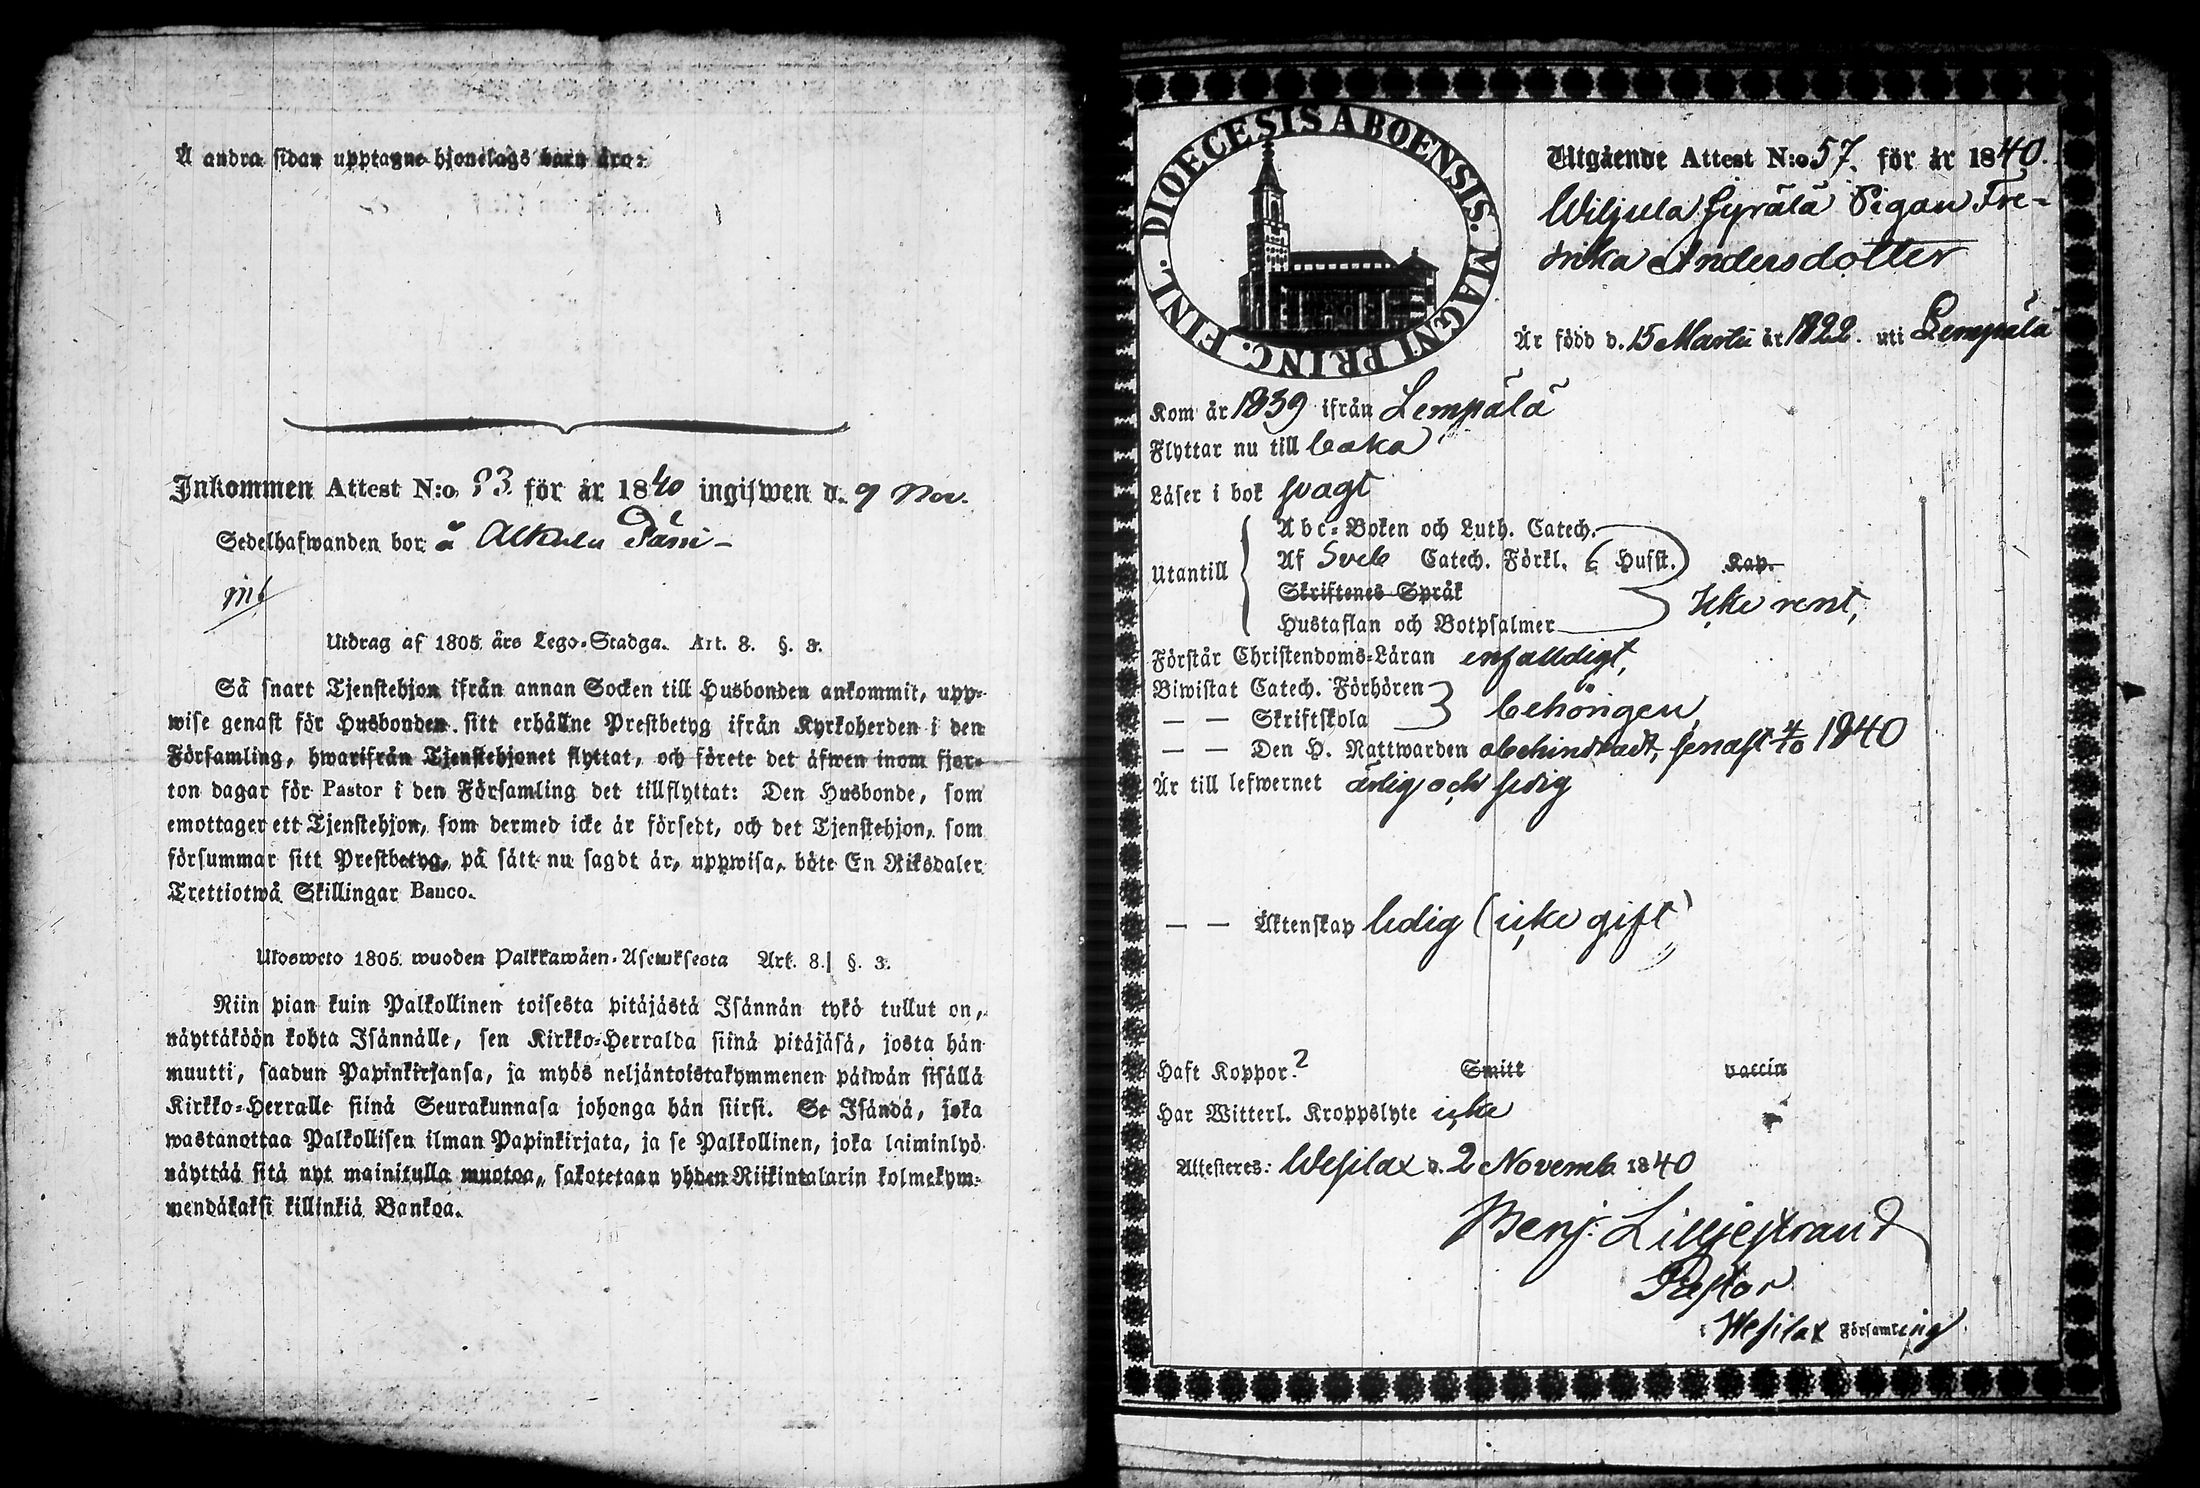 Å andra sidan upptagne hjonelags barn äro:
Inkommen Attest N:o 93 för år 1840 ingifwen d. 9 Nov.
Sedelhafwanden bor å Alkula
Utdrag af 1805 års Lego-Stadga. Art. 8. §. 3.
Så snart Tjenstehjon ifrån annan Socken till Husbonden ankommit, upp-
wise genast för Husbonden sitt erhållne Prestbetyg ifrån Kyrkoherden i den
Församling, hwarifrån Tjenstehjonet flyttat, och förete det äfwen inom fjor-
ton dagar för Pastor i den Församling det tillflyttat: Den Husbonde, som
emottager ett Tjenstehjon, som dermed icke är försedt, och det Tjenstehjon, som
försummar sitt Prestbetyg, på sätt nu sagdt är, uppwisa, böte En Riksdaler
Trettiotwå Skillingar Banco.
Ulosweto 1805 wuoden Palkkawäen-Asetuksesta Art. 8. §. 3.
Niin pian kuin Palkollinen toisesta pitäjästä Isännän tykö tullut on,
näyttäköön kohta Isännälle, sen Kirkko-Herralda siinä pitäjäsä, josta hän
muutti, saadun Papinkirjansa, ja myös neljäntoistakymmenen päiwän sisällä
Kirkko-Herralle siinä Seurakunnasa johonga hän siirsi. Se Isändä, joka
wastanottaa Palkollisen ilman Papinkirjata, ja se Palkollinen, joka laiminlyö
näyttää sitä nyt mainitulla muotoa, sakotetaan yhden Riikintalarin kolmekym-
mendäkaksi killinkiä Bankoa.
DIOECESIS ABOENSIS. MAGNI PRINC. FINL.
Utgående Attest N:o 57. för år 1840.
Pigan Fre-
drika Andersdotter
Är född d. 15 Martii år 1822. uti Lempälä
Kom år 1839 ifrån Lempälä
Flyttar nu till baka
Läser i bok svagt
Utantill
Abc-Boken och Luth. Catech.
Af Sveb Catech. Förkl. 6 Hufst. Kap.
Skriftenes Språk
Hustaflan och Botpsalmer
icke rent,
Förstår Christendoms-Läran enfalldigt,
Biwistat Catech. Förhören
— — Skriftskola
behörigen,
— — Den H. Nattwarden obehindradt, senast 4/10 1840
Är till lefwernet ärlig och sedig
— — Äktenskap ledig (icke gift)
Haft Koppor. ? Smitt vaccin
Har Witterl. Kroppslyte icke
Attesteres: Wesilax d. 2 Novemb 1840
Benj. Lilljestrand
Pastor
i Wesilax Församling